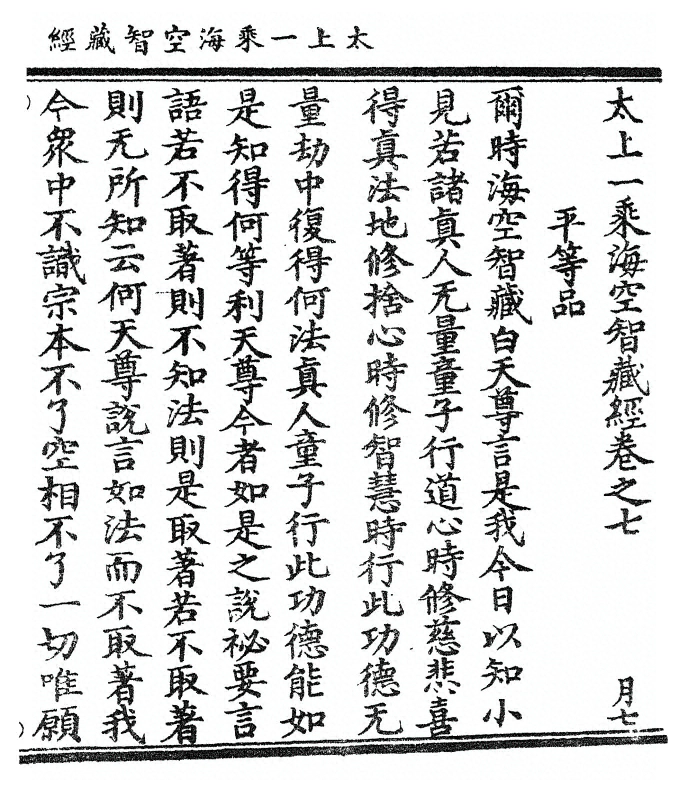 太上一乘海空智藏經
太上一乘海空智藏經卷之七　月七
平等品
爾時海空智藏白天尊言是我今日以知小
見若諸眞人无量童子行道心時修慈悲喜
得眞法地修捨心時修智慧時行此功德无
量劫中復得何法眞人童子行此功德能如
是知得何等利天尊今者如是之說祕要言
語若不取著則不知法則是取著若不取著
則无所知云何天尊說言如法而不取著我
今衆中不識宗本不了空相不了一切唯願